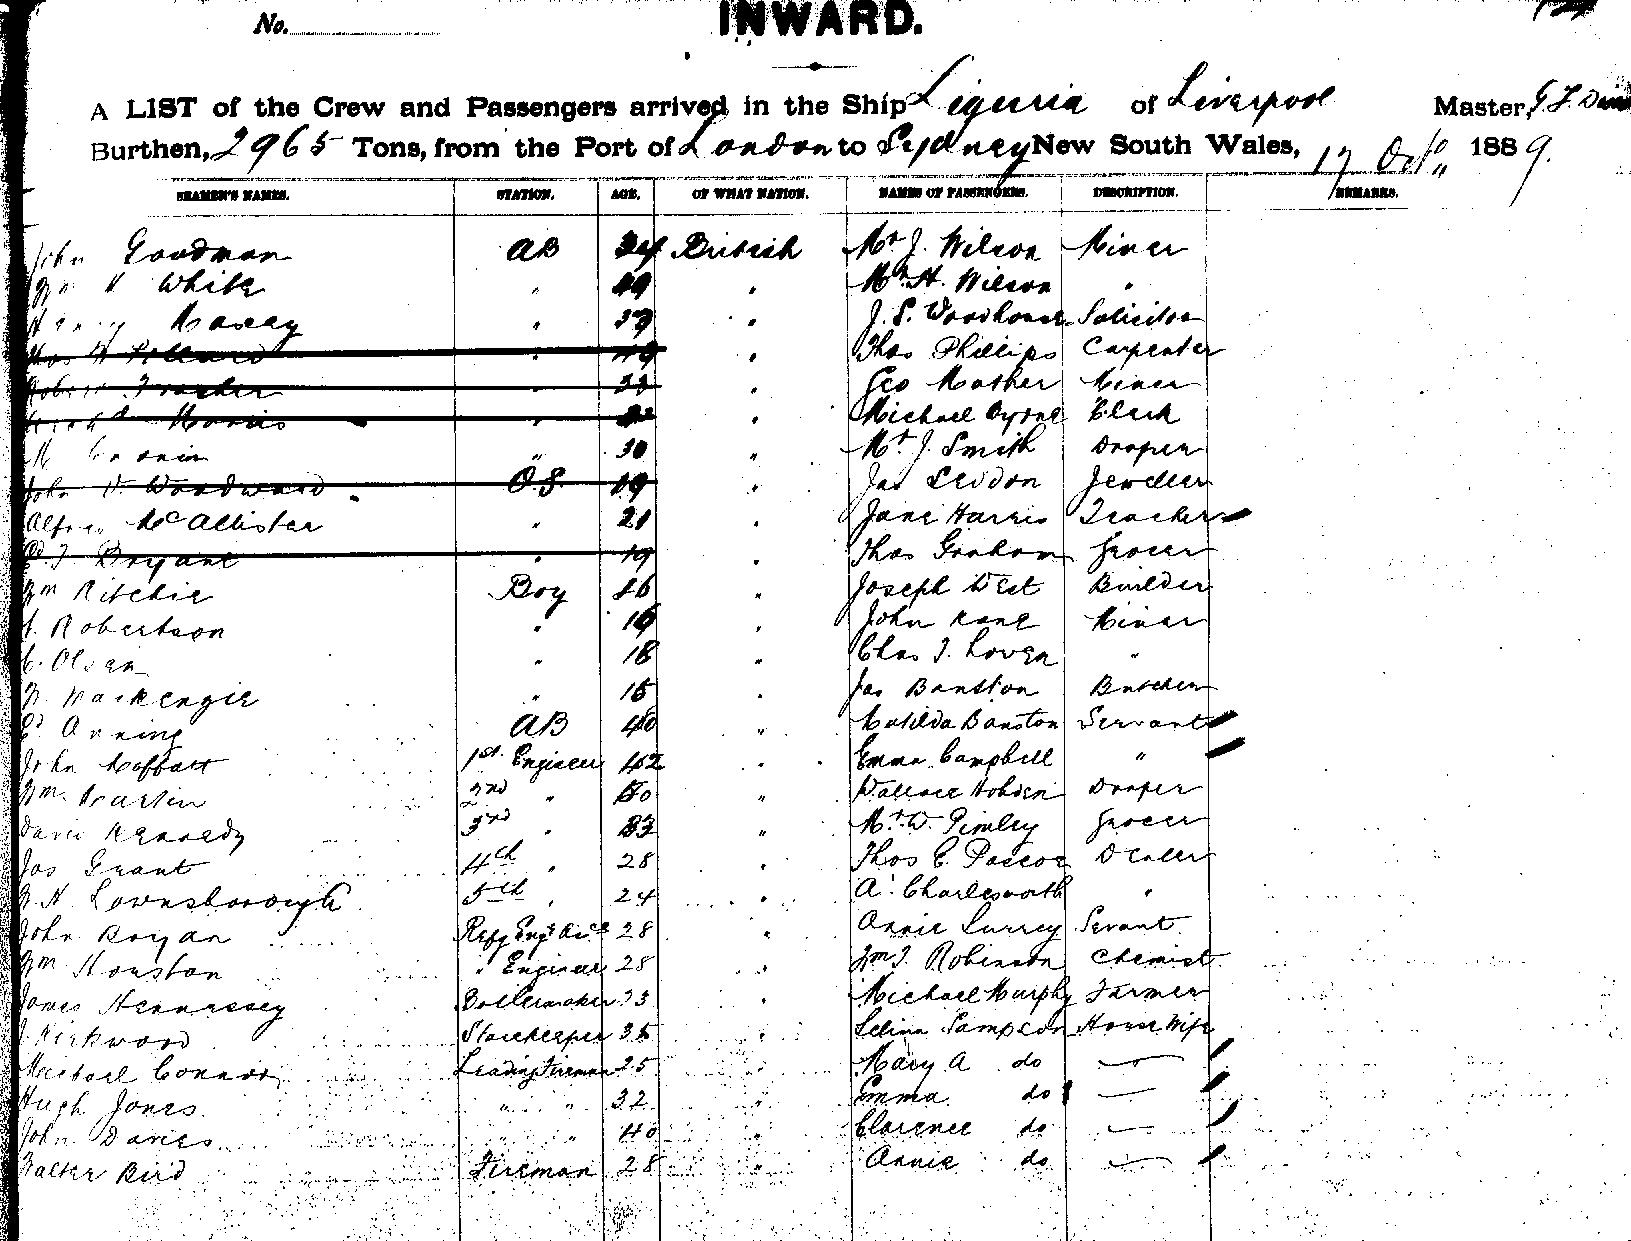 No.
INWARD.
A LIST of the Crew and Passengers arrived in the Ship Liguria of Liverpool Master,
Burthen, 2965 Tons, from the Port of London to Sydney New South Wales, 17 Oct 1889.
SEAMEN'S NAMES. STATION. AGE. OF WHAT NATION. NAMES OF PASSENGERS. DESCRIPTION. REMARKS.
John Goodman AB British Mr J. Wilson Miner
Wm H White " " H. Wilson "
Henry " " J. S. Woodhouse Solicitor
" " Thos Phillips Carpenter
Robert " " Geo Mather Miner
Morris " " Michael Byrne Clerk
" 30 " Mr J. Smith Draper
John H Woodward O.S. 19 " Jas Seddon Jeweller
Alfred McAllister " 21 " Jane Harris Teacher
Bryant " 19 " Thos Graham Grocer
Wm Ritchie Boy 16 " Joseph West Builder
Robertson " 16 " John Kane Miner
C. Olsen " " Chas "
Mackenzie " 15 " Jas Banston Butcher
AB 40 " Matilda Banston Servant
John Moffatt 1st Engineer 42 " Emma Campbell "
Wm. Martin 2nd " 50 " Wallace Draper
David Kennedy 3rd " 33 " Mr W. Grocer
Jas Grant 4th " 28 " Thos E. Pascoe Dealer
Lownsborough 5th " 24 " A. Charlesworth "
John 28 " Annie Servant
Wm Houston " Engineer 28 " Wm J. Robinson Chemist
James Hennessey Boilermaker 33 " Michael Murphy Farmer
J. Kirkwood Storekeeper 35 " Selina Sampson House Wife
Michael Connor Leading Fireman 35 Mary A do —
Hugh Jones " " 32 " Emma do —
John Davies " " 40 " Clarence do —
Walter Bird Fireman 28 " Annie do —